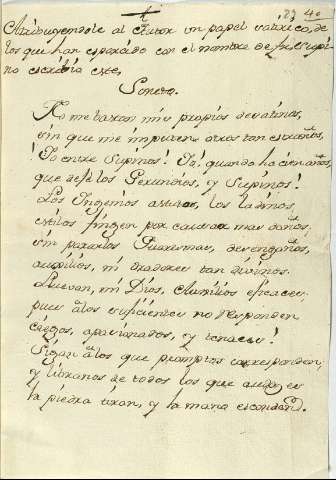 40
Atribuyendole al Autor un papel satirico, de
los que han esparcido con el nombre de
no escribia este,
Soneto.
No me bastan mis propios desatinos,
sin que me imputen otros tan estraños,
Yo entre Supinos! Yo! quando ha cien años,
que dexé los Gerundios, y Supinos!
Los Ingenios astutos, los ladinos,
estilos fingen por causar mas daños,
sin pararlos Quaresmas, desengaños,
auxilios, ni oradores tan divinos.
Lluevan, mi Dios, Auxilios eficaces
pues a los suficientes no responden
ciegos, apasionados, y tenaces!
Sigan a los que promptos corresponden,
y libranos de todos los que audaces
la piedra tiran, y la mano esconden.